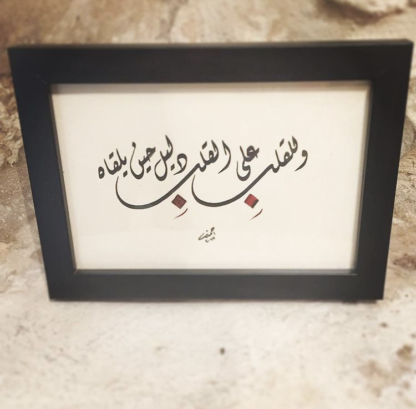 وللقلب على القلب دليل حين يلقاه